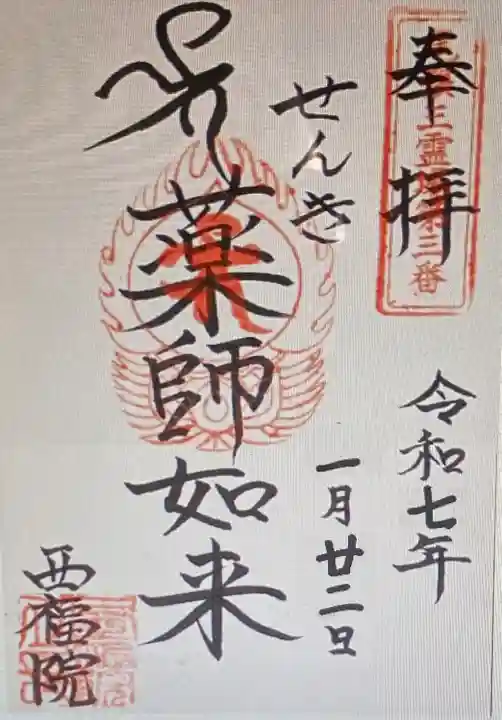 奉拝
上霊
第三番
令和七年
一月廿二日
せんき
薬師如来
西福院